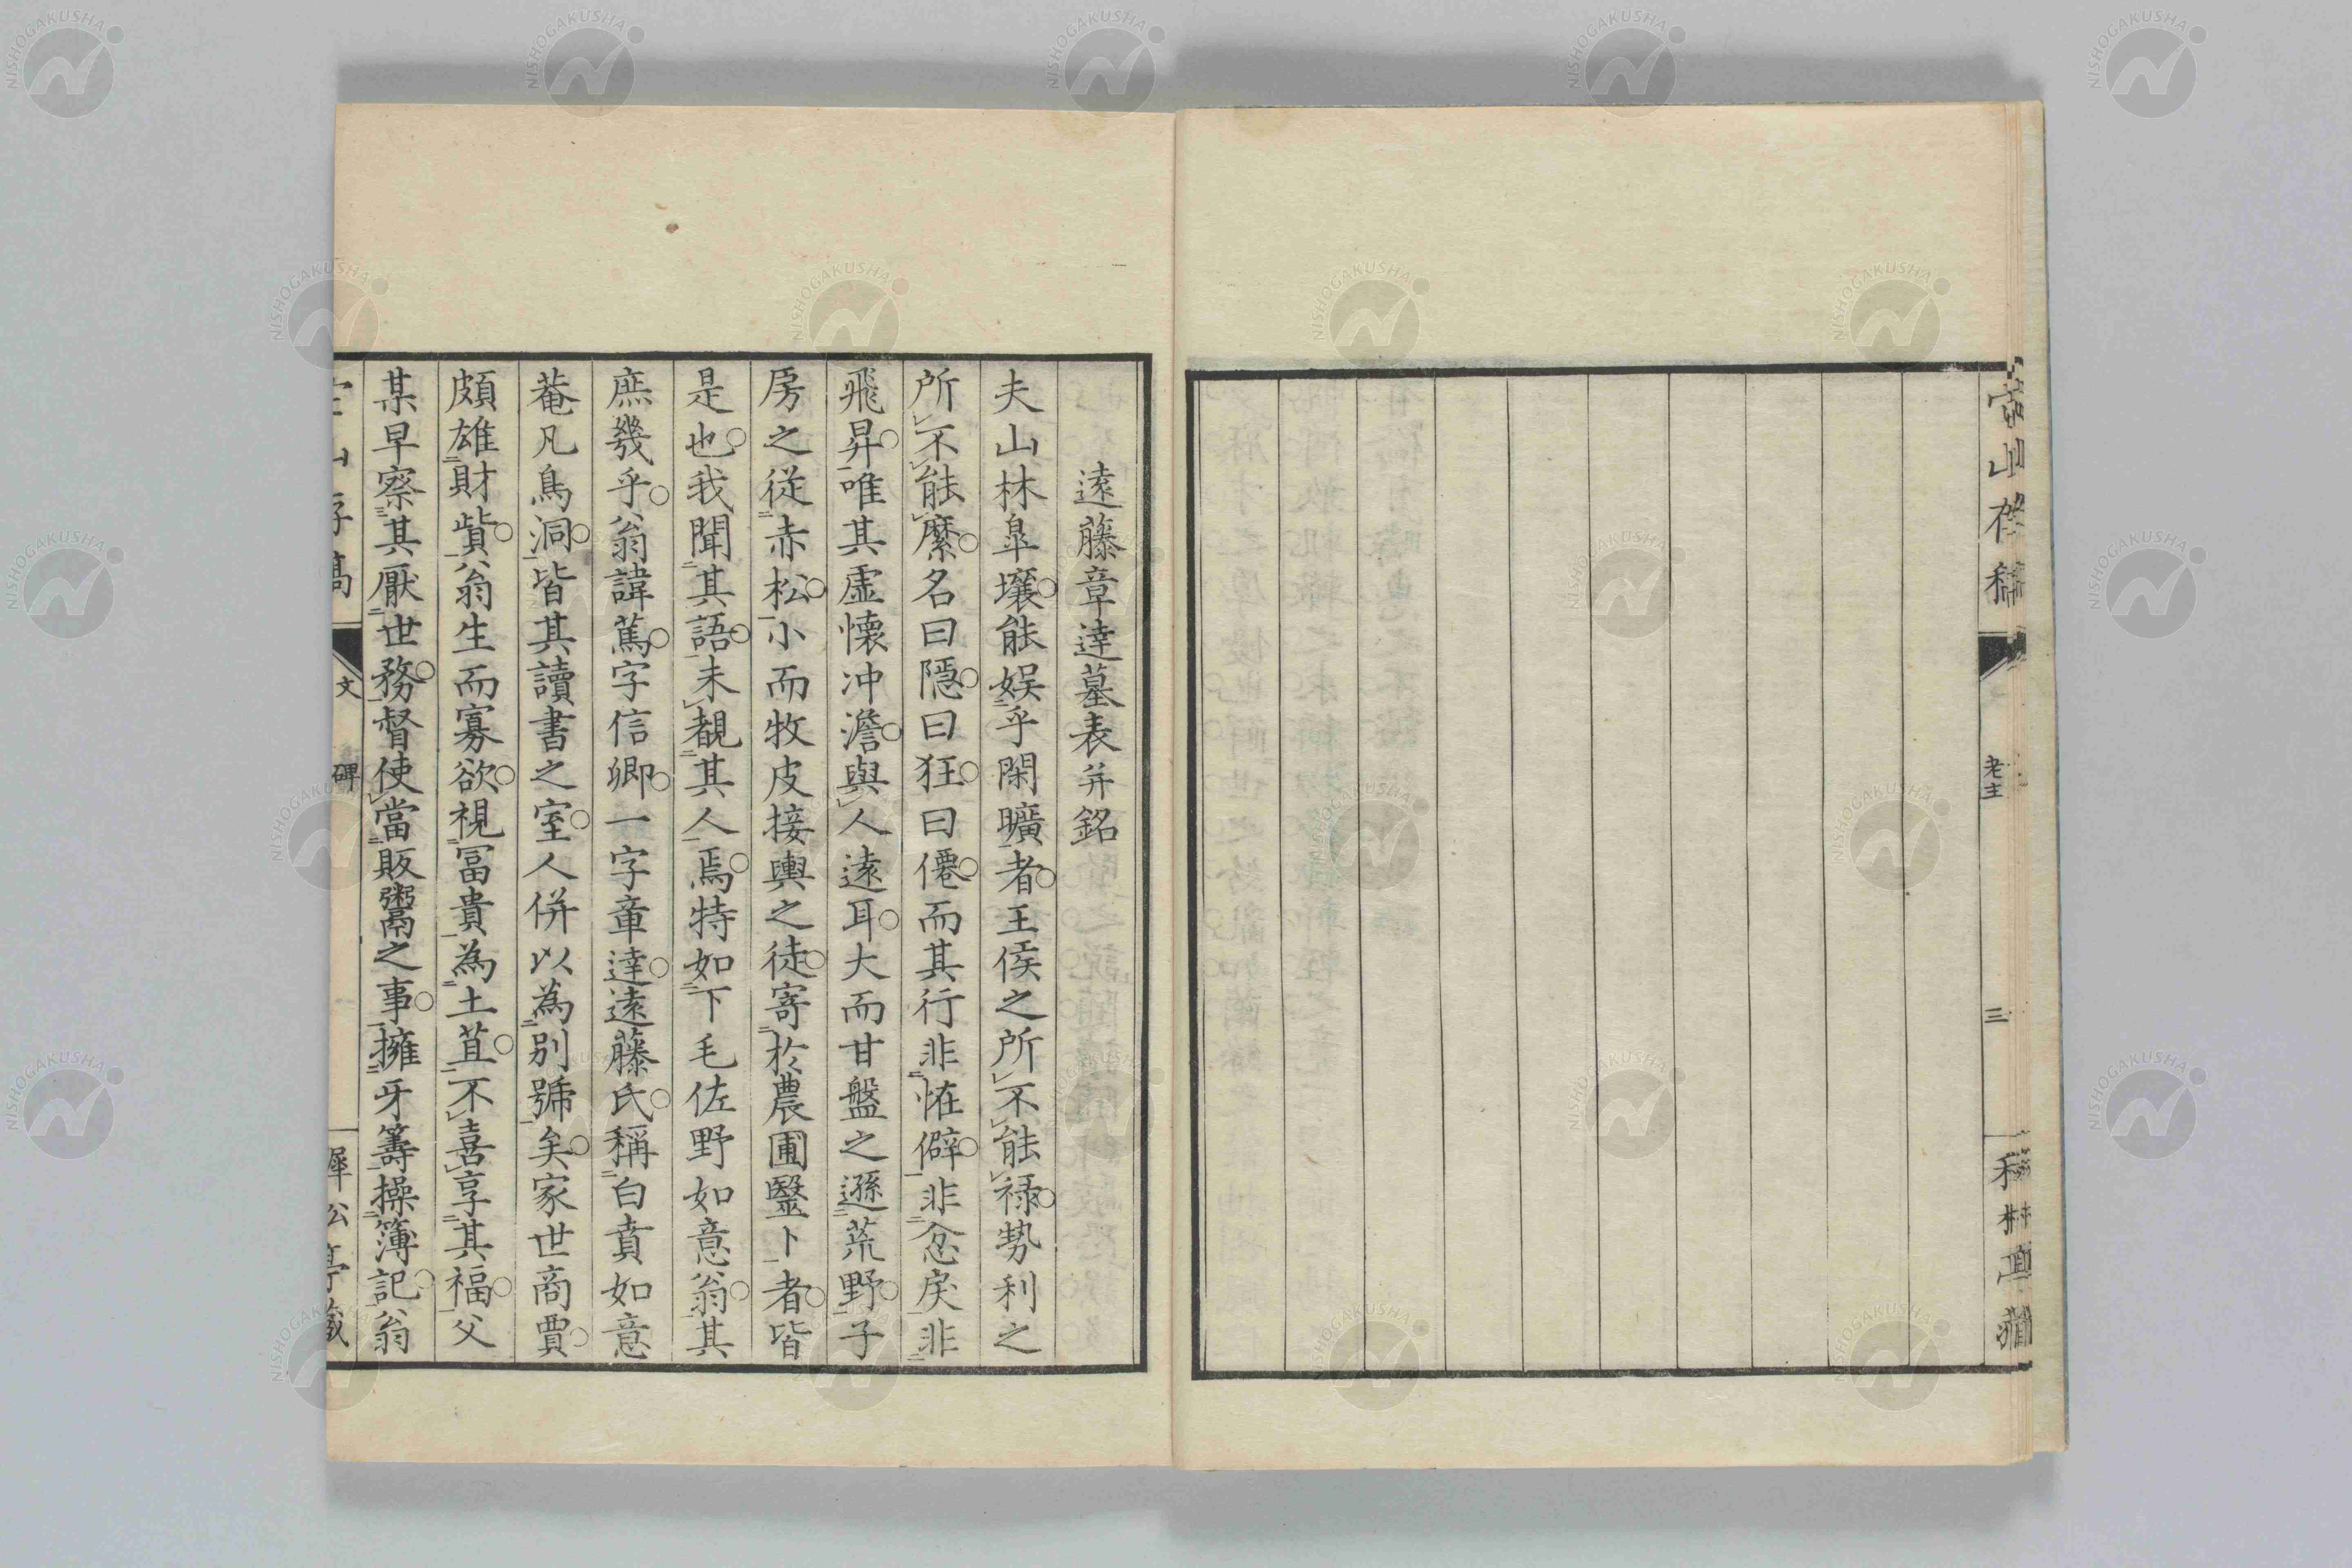 遠藤章達墓表并銘
夫山林皐壤能娯乎閑曠者王侯之所不能祿勢利之
所不能縻名曰隱曰狂曰僊而其行非恠僻非忿戾非
飛昇唯其虛懷冲澹與人遠耳大而甘盤之遜荒野子
房之從赤松小而牧皮接輿之徒寄於農圃毉卜者皆
是也我聞其語未覩其人焉特如下毛佐野如意翁其
庶幾乎翁諱篤字信卿一字章達遠藤氏稱白賁如意
菴凡鳥洞皆其讀書之室人併以為別號矣家世商賈
頗雄財貲翁生而寡欲視冨貴為土苴不喜享其福父
某早察其厭世務督使當販鬻之事擁牙籌操簿記翁
文 碑
三
NISHOGAKUSHA